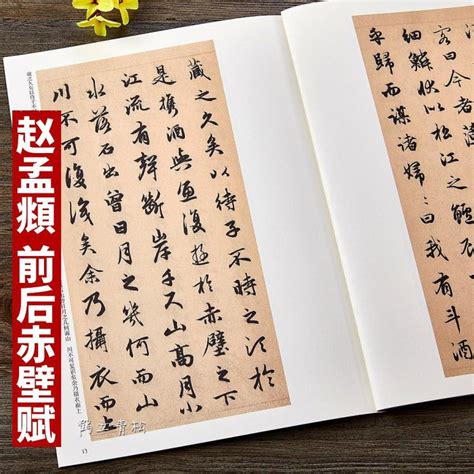 赵孟頫 前后赤壁赋
客曰今者
細鱗狀似松江之鱸
乎歸而謀諸婦々曰我有斗酒
藏之久矣以待子不時之須於
是攜酒與魚復遊於赤壁之下
江流有聲斷岸千尺山高月小
水落石出曾日月之幾何而山
川不可復識矣余乃攝衣而
13
鹤立青松